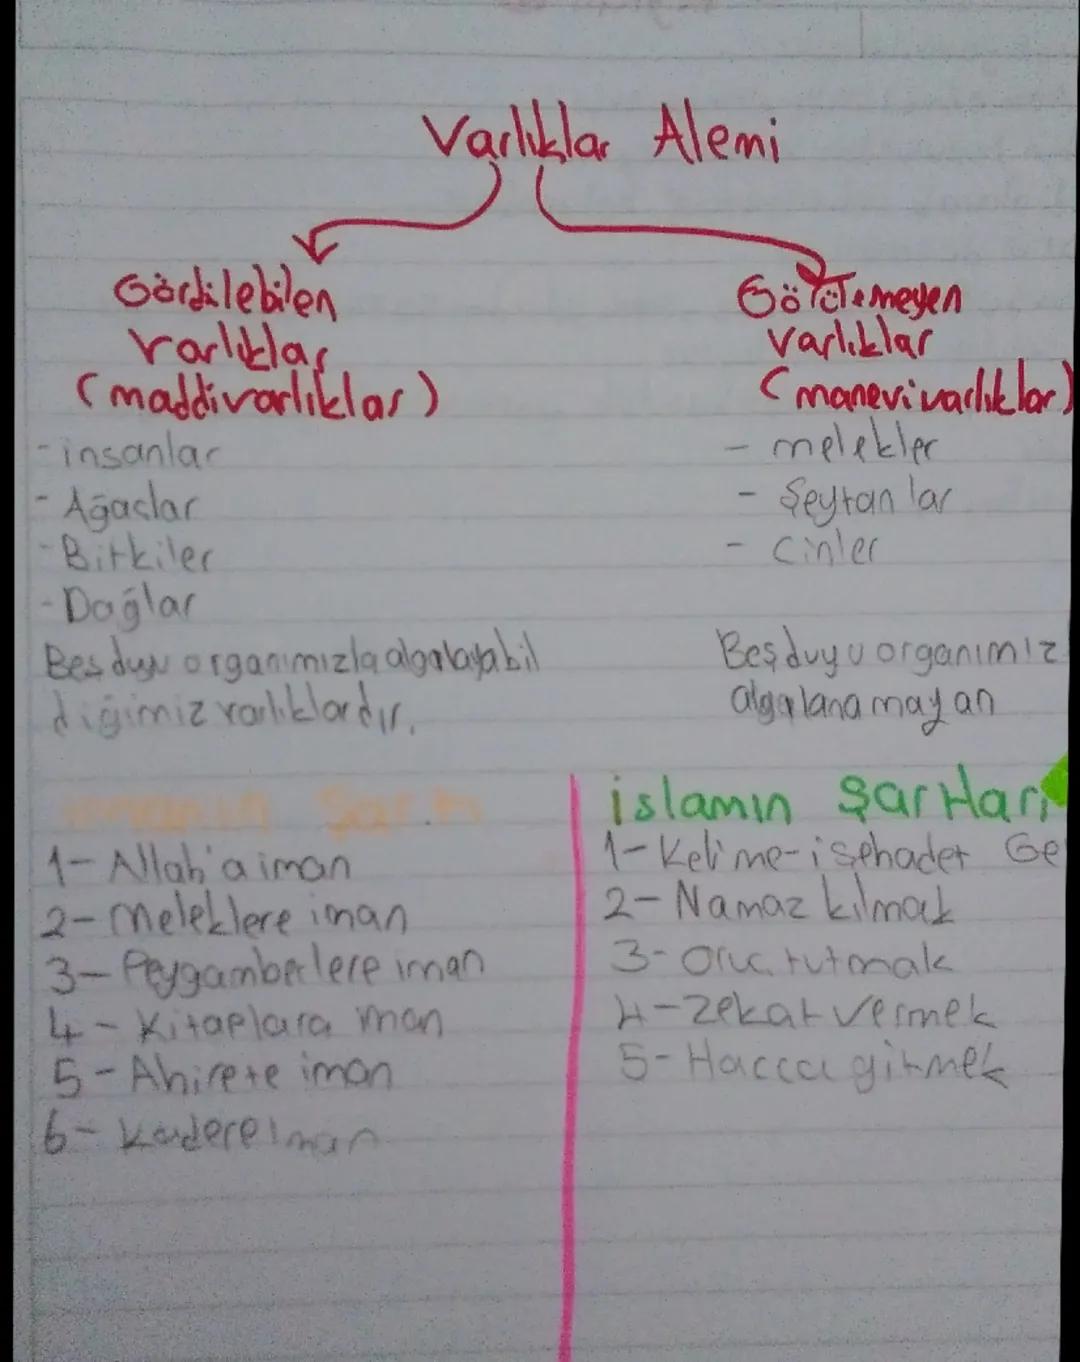 Varlıklar Alemi
Gördilebilen
varlıklar
(maddivarlıklar)
- insanlar
- Ağaclar
- Bitkiler
- Dağlar
Beş duyu organımızla algılayabil
diğimiz varlıklardır.
Görülemeyen
varlıklar
(manevi varlıklar)
- melekler
- Şeytanlar
- Cinler
Beş duyu organımız
algılanamayan
imanın Şartı
1- Allah'a iman
2- Meleklere iman
3- Peygamberlere iman
4- Kitaplara iman
5- Ahirete iman
6- Kadere iman
islamın şartları
1- Kelime-i şehadet Ge
2- Namaz kılmak
3- Oruc tutmak
4- Zekat vermek
5- Hacca gitmek